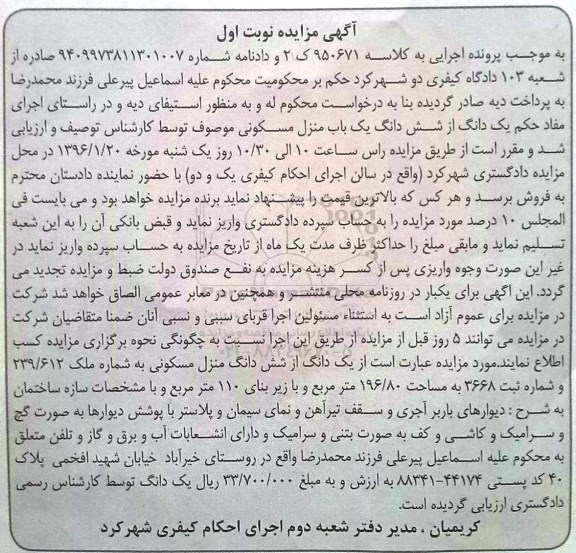 آگهی مزایده نوبت اول
به موجب پرونده اجرایی به کلاسه ۹۵۰۶۷۱ ک ۲ و دادنامه شماره ۹۴۰۹۹۷۳۸۱۱۳۰۱۰۰۷ صادره از
شعبه ۱۰۳ دادگاه کیفری دو شهرکرد حکم بر محکومیت محکوم علیه اسماعیل پیرعلی فرزند محمدرضا
به پرداخت دیه صادر گردیده بنا به درخواست محکوم له و به منظور استیفای دیه و در راستای اجرای
مفاد حکم یک دانگ از شش دانگ یک باب منزل مسکونی موصوف توسط کارشناس توصیف و ارزیابی
شد و مقرر است از طریق مزایده راس ساعت ۱۰ الی ۱۰/۳۰ روز یک شنبه مورخه ۱۳۹۶/۱/۲۰ در محل
مزایده دادگستری شهرکرد (واقع در سالن اجرای احکام کیفری یک و دو) با حضور نماینده دادستان محترم
به فروش برسد و هر کس که بالاترین قیمت را پیشنهاد نماید برنده مزایده خواهد بود و می بایست فی
المجلس ۱۰ درصد مورد مزایده را به حساب سپرده دادگستری واریز نماید و قبض بانکی آن را به این شعبه
تسلیم نماید و مابقی مبلغ را حداکثر ظرف مدت یک ماه از تاریخ مزایده به حساب سپرده واریز نماید در
غیر این صورت وجوه واریزی پس از کسر هزینه مزایده به نفع صندوق دولت ضبط و مزایده تجدید می
گردد. این اگهی برای یکبار در روزنامه محلی منتشر و همچنین در معابر عمومی الصاق خواهد شد شرکت
در مزایده برای عموم آزاد است به استثناء مسئولین اجرا قربای سببی و نسبی آنان ضمنا متقاضیان شرکت
در مزایده می توانند ۵ روز قبل از مزایده از طریق این اجرا نسبت به چگونگی نحوه برگزاری مزایده کسب
اطلاع نمایند.مورد مزایده عبارت است از یک دانگ از شش دانگ منزل مسکونی به شماره ملک ۲۳۹/۶۱۲
و شماره ثبت ۳۶۶۸ به مساحت ۱۹۶/۸۰ متر مربع و با زیر بنای ۱۱۰ متر مربع و با مشخصات سازه ساختمان
به شرح : دیوارهای باربر آجری و سقف تیرآهن و نمای سیمان و پلاستر با پوشش دیوارها به صورت گچ
و سرامیک و کاشی و کف به صورت بتنی و سرامیک و دارای انشعابات آب و برق و گاز و تلفن متعلق
به محکوم علیه اسماعیل پیرعلی فرزند محمدرضا واقع در روستای خیرآباد خیابان شهید افخمی پلاک
۴۰ کد پستی ۴۴۱۷۴-۸۸۳۴۱ به ارزش و به مبلغ ۳۳/۷۰۰/۰۰۰ ریال یک دانگ توسط کارشناس رسمی
دادگستری ارزیابی گردیده است.
کریمیان ، مدیر دفتر شعبه دوم اجرای احکام کیفری شهرکرد